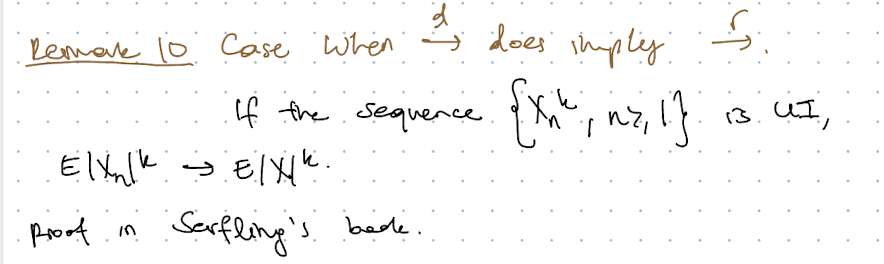 Remark 10 Case when →^d does imply →^r.
If the sequence {X_n^k, n ≥ 1} is UI,
E|X_n|^k → E|X|^k.
Proof in Serfling's book.